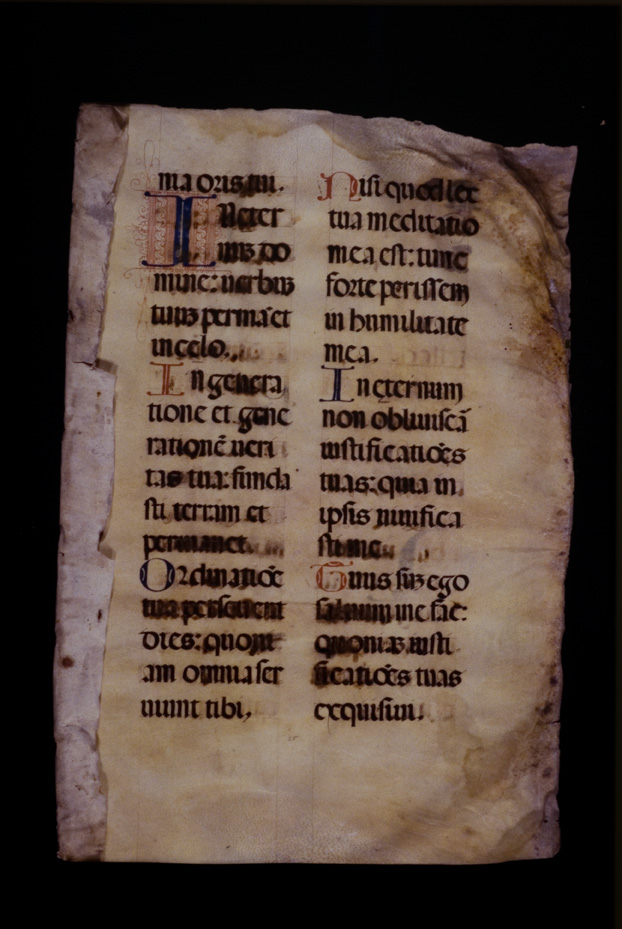 ma oris tui.
In eter
num do
mine: verbuz
tuuz perma͞et
in celo.
In genera
tione et gene
rationē veri
tas tua: funda
sti terram et
permanet.
Ordinatio͞e
tua perseverent
dies: quoni
am omnia ser
viunt tibi.
Nisi quod lex
tua meditatio
mea est: tunc
forte perissem
in humilitate
mea.
In eternum
non obliviscā
iustificatio͞es
tuas: quia in
ipsis vivifica
sti me.
Tuus suz ego
salvum me fac:
quoniaz iusti
ficatio͞es tuas
exquisivi.